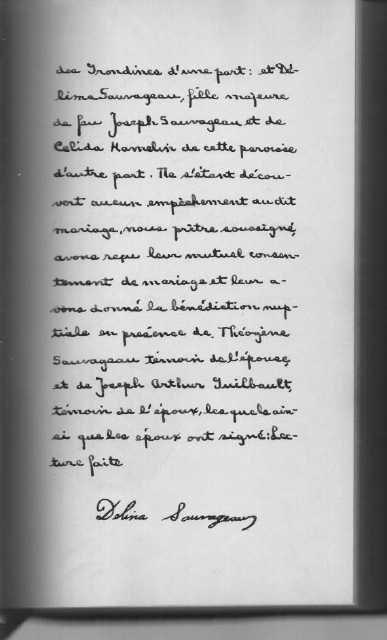 des Grondines d'une part: et Dé-
lima Sauvageau, fille majeure
de feu Joseph Sauvageau et de
Célida Hamelin de cette paroisse
d'autre part. Ne s'étant décou-
vert aucun empêchement au dit
mariage, nous prêtre soussigné,
avons reçu leur mutuel consen-
tement de mariage et leur a-
vons donné la bénédiction nup-
tiale en présence de Théogène
Sauvageau témoin de l'épouse,
et de Joseph Arthur Guilbault,
témoin de l'époux, lesquels ain-
si que les époux ont signé: Lec-
ture faite
Delina Sauvageau